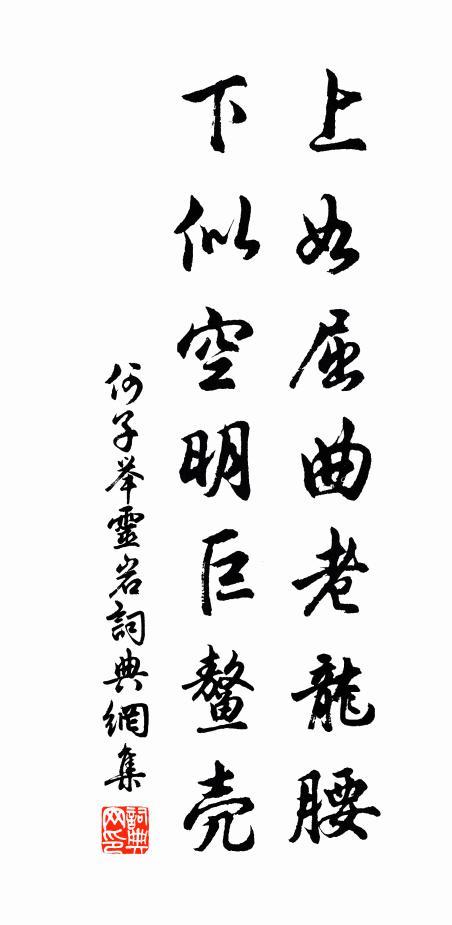 上如屈曲老龍腰
下似空明巨鰲壳
何子举靈岩詞典網集
詞典网印